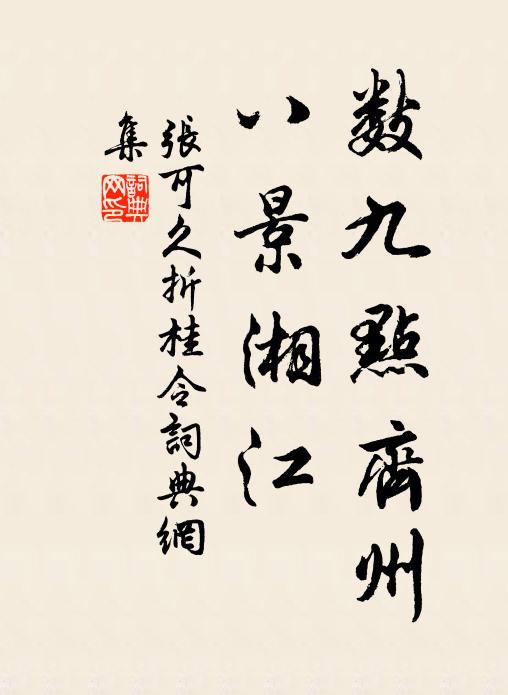 數九點齊州
八景湘江
張可久折桂令詞典網
集
詞典網印